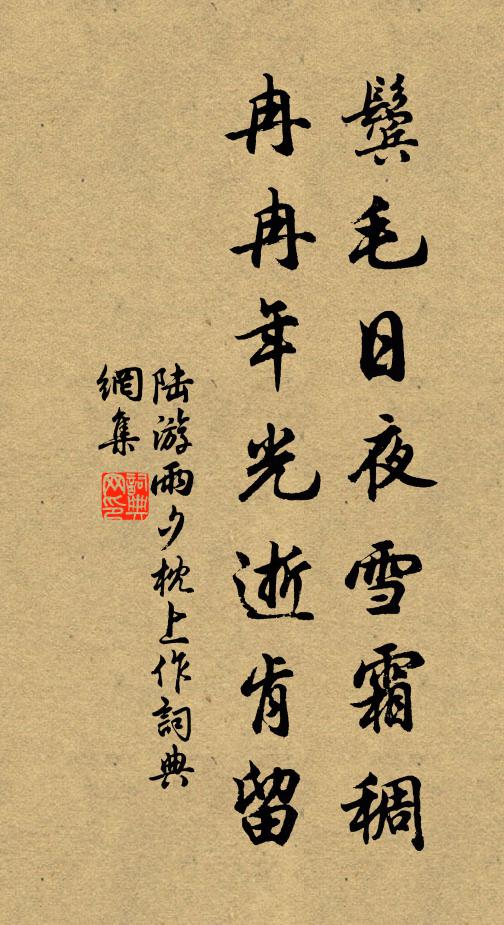 鬓毛日夜雪霜稠
冉冉年光逝肯留
陆游雨夕枕上作詞典
網集
詞典
网印